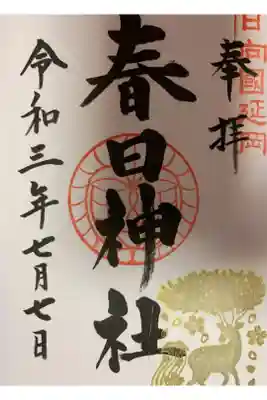 日向國延岡
奉拝
春日神社
令和三年七月七日